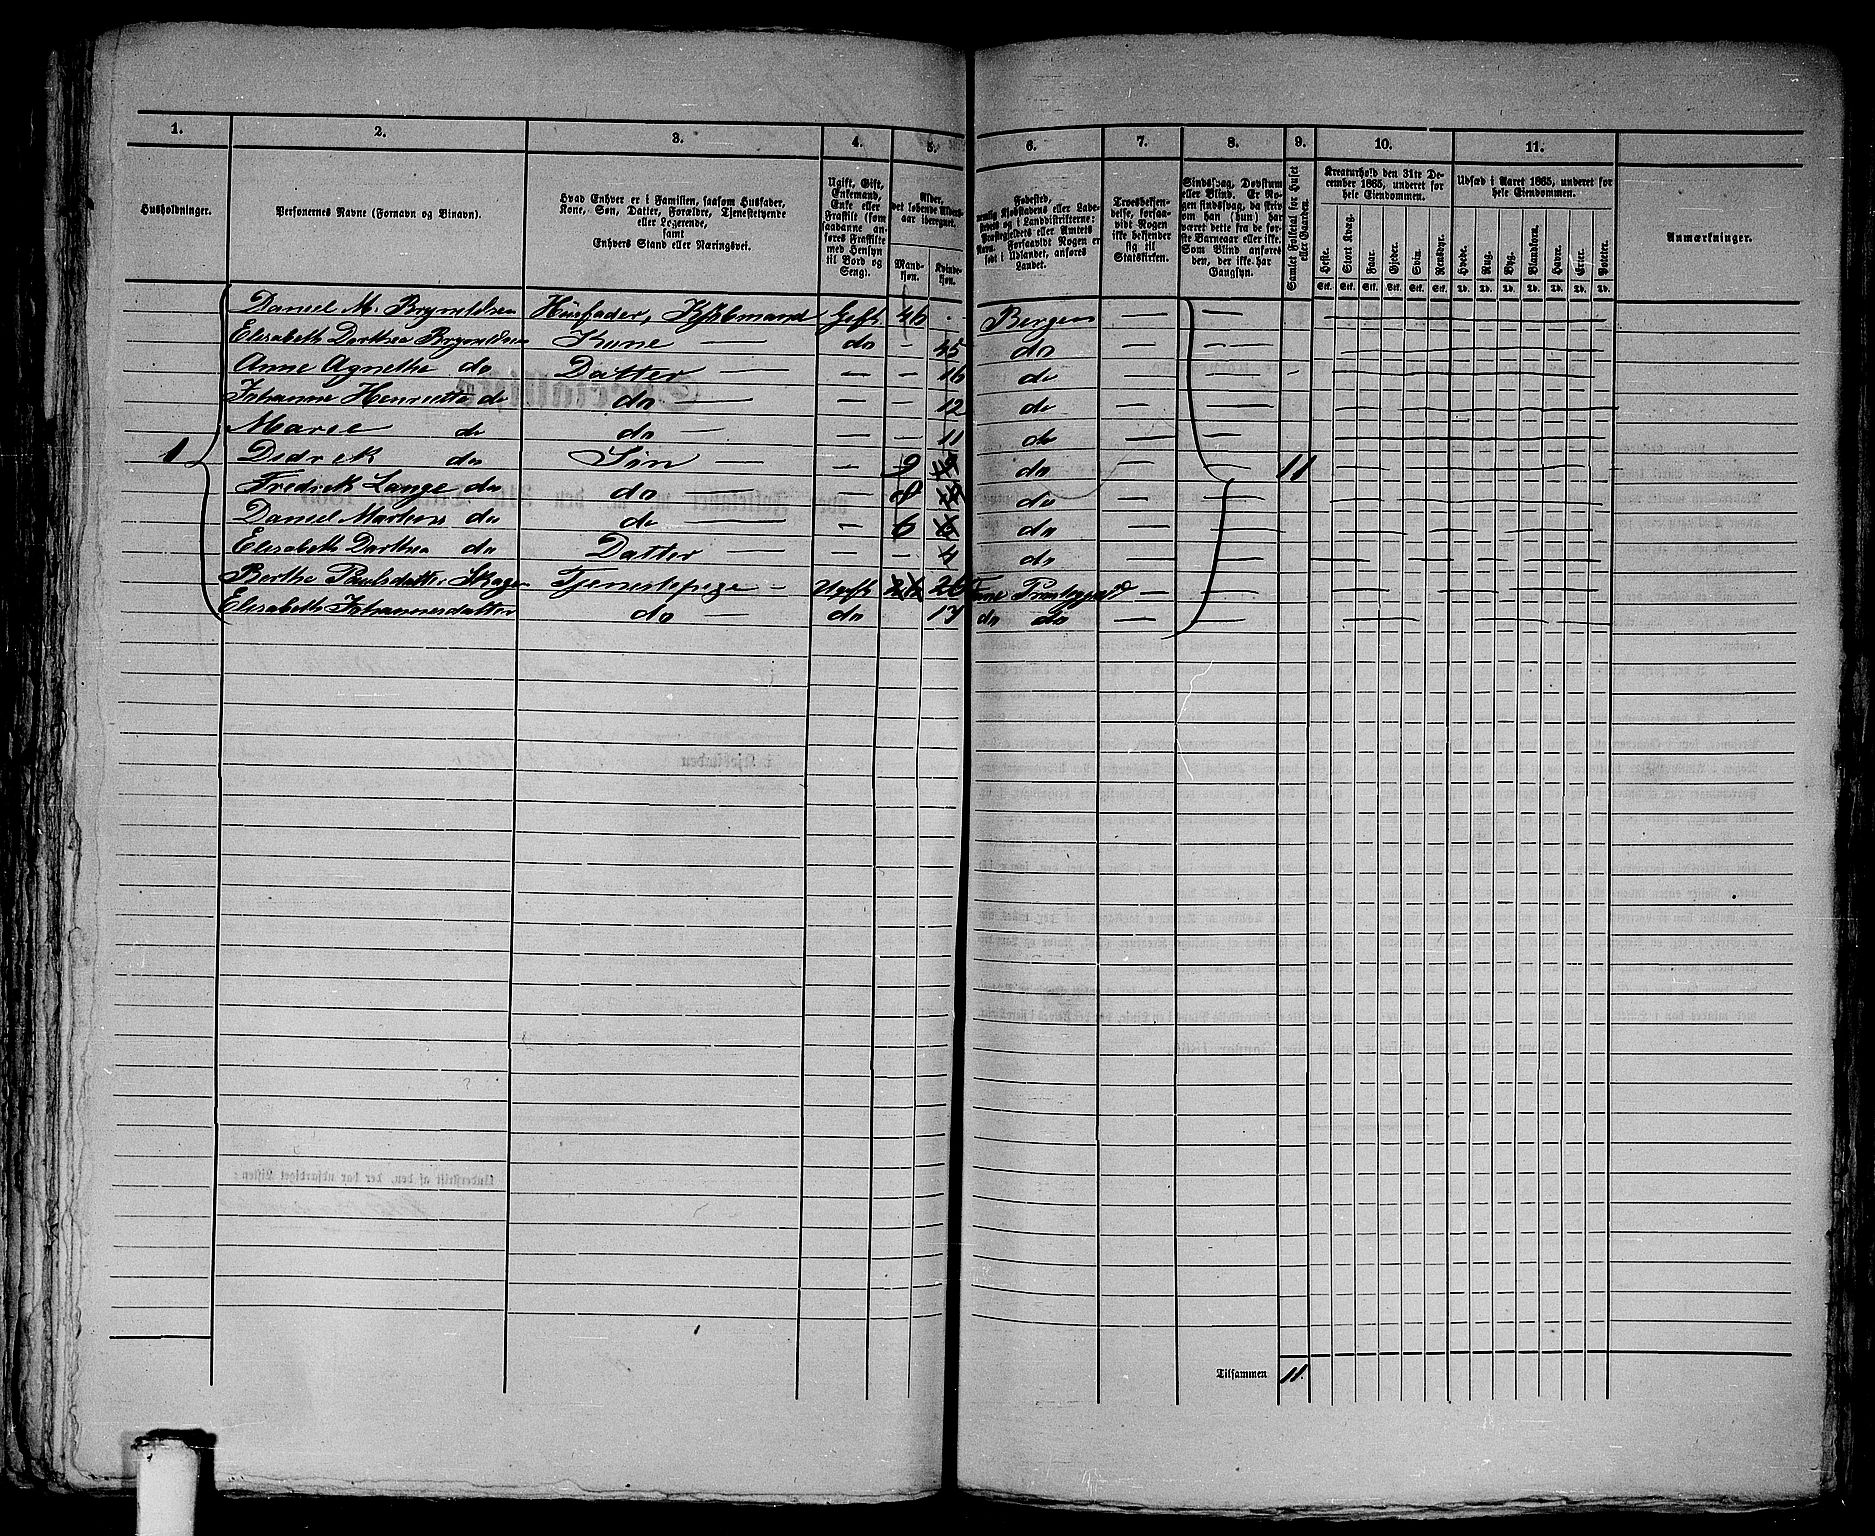 1. 2. 3. 4. 5. 6. 7. 8. 9. 10. 11.
Husholdninger.
Personernes Navne (Fornavn og Binavn).
Hvad Enhver er i Familien, saasom Husfader, Kone, Søn, Datter, Forældre, Tjenestetyende eller Logerende, samt Enhvers Stand eller Næringsvei.
Ugift, Gift, Enkemand, Enke eller Fraskilt (som saadanne anføres Fraskilte med Hensyn til Bord og Seng).
Alder, det løbende Alders-aar iberegnet.
Mand-kjøn.
Kvinde-kjøn.
Fødested, nemlig Kjøbstadens eller Ladestedets og i Landdistrikterne: Præstegjeldets eller Amtets Navn. Forsaavidt Nogen er født i Udlandet, anføres Landet.
Troesbekjendelse, forsaavidt Nogen ikke bekjender sig til Statskirken.
Sindssvag, Døvstum eller Blind. Er Nogen sindssvag, da skrives om han (hun) har været dette fra de første Barneaar eller ikke. Som Blind anføres den, der ikke har Gangsyn.
Samlet Folketal for Huset eller Gaarden.
Kreaturhold den 31te December 1865, underet for hele Eiendommen.
Heste. Stort Kvæg. Faar. Gjeder. Svin. Rensdyr.
Udsæd i Aaret 1865, underet for hele Eiendommen.
Hvede. Rug. Byg. Blandkorn. Havre. Erter. Poteter.
Anmærkninger.
Stk. Stk. Stk. Stk. Stk. Stk. Td. Td. Td. Td. Td. Td. Td.
Daniel M. Bryneldsen Husfader, Gift 46 - Bergen — —
Elisabeth Dorthea Bryneldsen Kone — do — 45 do — —
Anne Agnethe do Datter — — — 16 do — —
Johanne Henriette do do — — — 12 do — —
Marie do do — — — 11 do — —
1 Didrik do Søn — — 9 do — — 11
Fredrik Lange do do — — 8 do — —
Daniel Martens do do — — 6 do — —
Elisabeth Dorthea do Datter — — — 4 do — —
Berthe Paulsdatter Tjenestepige — Ugift 26 — —
Elisabeth Johannesdatter do — do 17 do do — —
Tilsammen 11.